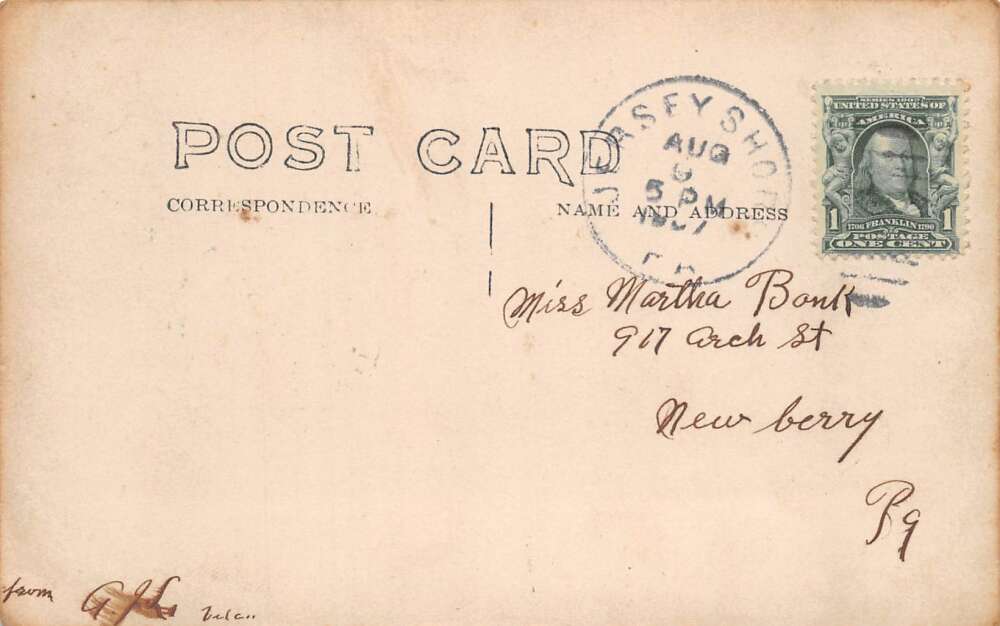 POST CARD
CORRESPONDENCE
NAME AND ADDRESS
JERSEY SHORE
AUG
5 PM
1907
PA
SERIES 1902
UNITED STATES OF
AMERICA
1 1706 FRANKLIN 1790 1
POSTAGE
ONE CENT
Miss Martha Bonk
917 Arch St
New berry
Pa
from